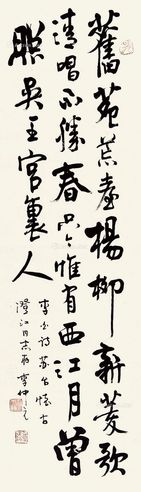 舊苑荒臺楊柳新菱歌
清唱不勝春只今惟有西江月曾
照吳王宮裏人
李白詩蘇台懷古
澄江同志兩 李仲